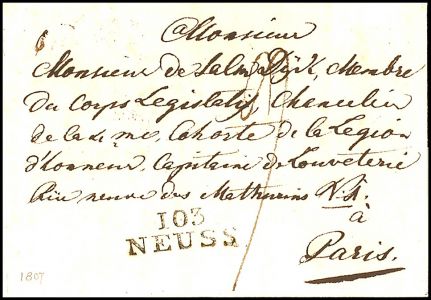 Monsieur
Monsieur de Salm Dyck, Membre
du Corps Legislatif, Chancelier
de la 4me Cohorte de la Legion
d'honneur, Capitaine de Louveterie
Rüe neuve des Mathurins
à
Paris.
103
NEUSS
1807